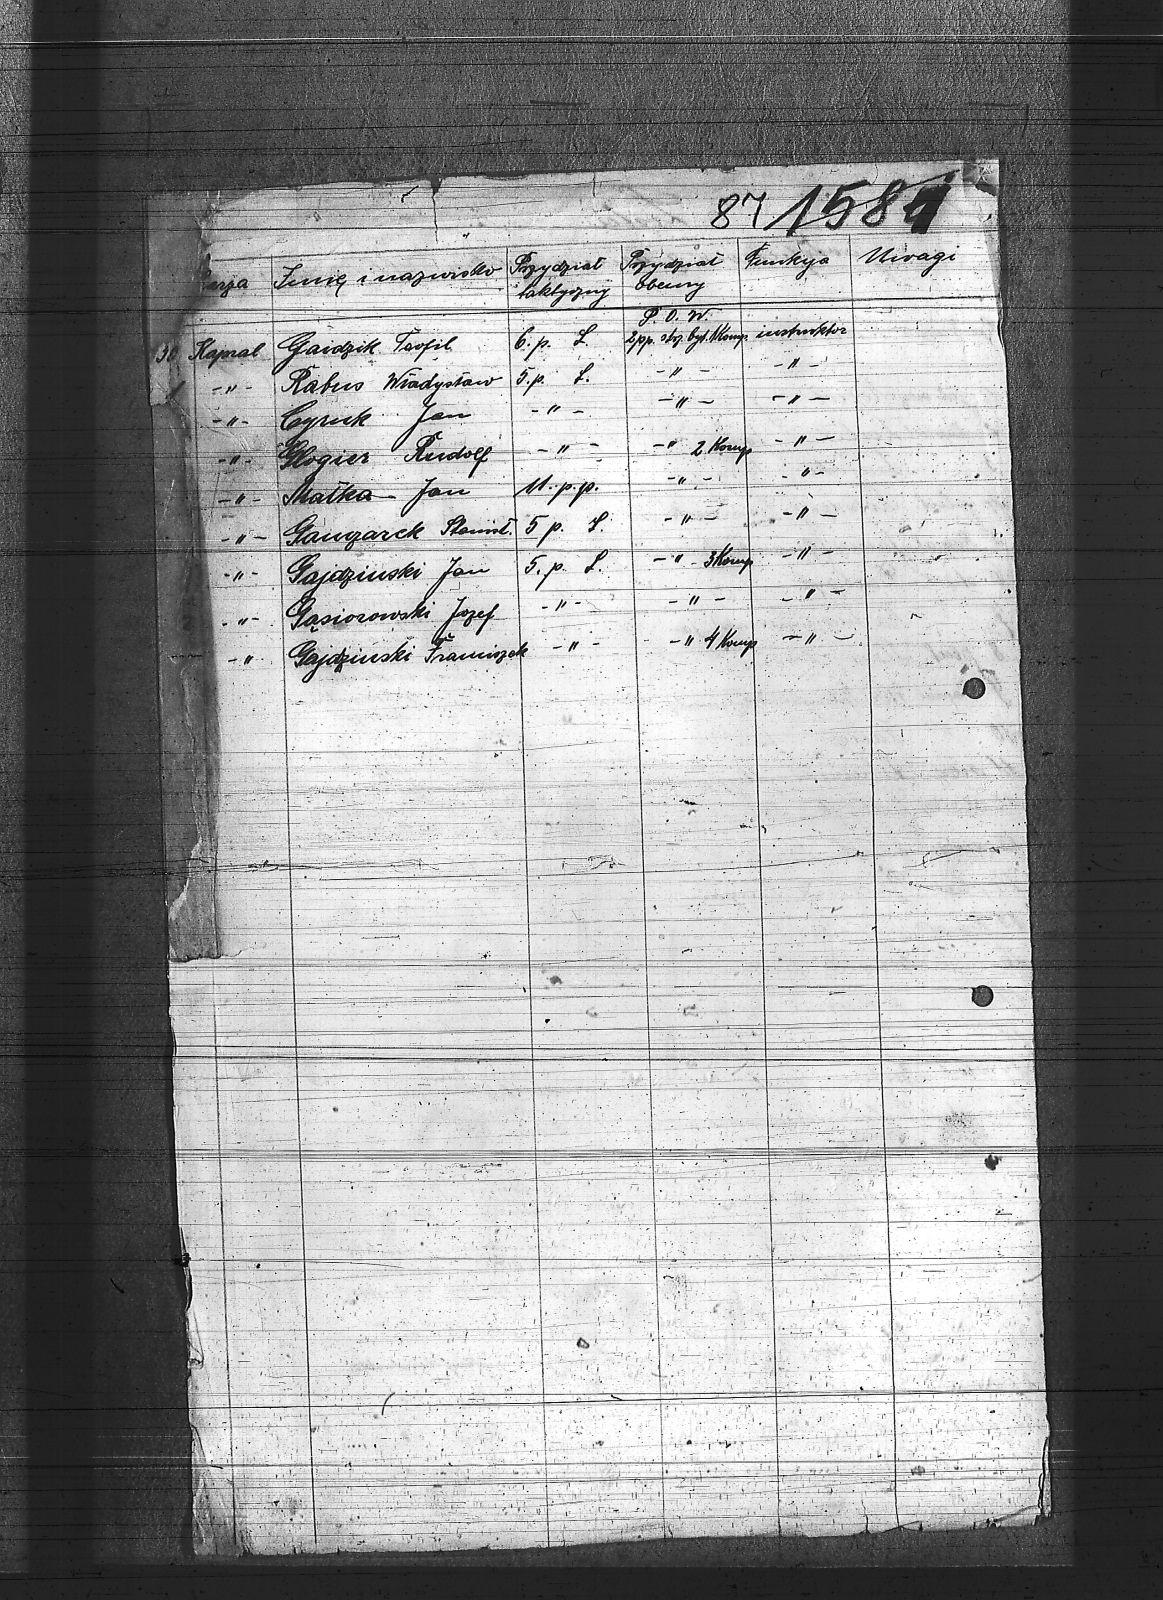 87 1584
arża Imię i nazwisko Przydział taktyczny Przydział obecny Funkcja Uwagi
P. O. W.
30 Kapral Gaidzik Teofil 6. p. L. 2 pp. obz. byt. 1 Komp. instruktor
-"- Rabus Władysław 5. p. L. -"- -"-
-"- Cyruk Jan -"- -"- -"-
-"- Glogier Rudolf -"- -"- 2 Komp -"-
-"- Małka Jan 11. p. p. -"- -"-
-"- Ganczarek Stanisł. 5 p. L. -"- -"-
-"- Gajdzinski Jan 5. p. L. -"- 3 Komp -"-
-"- Gąsiorowski Jozef -"- -"- -"-
-"- Gajdzinski Franciszek -"- -"- 4 Komp -"-